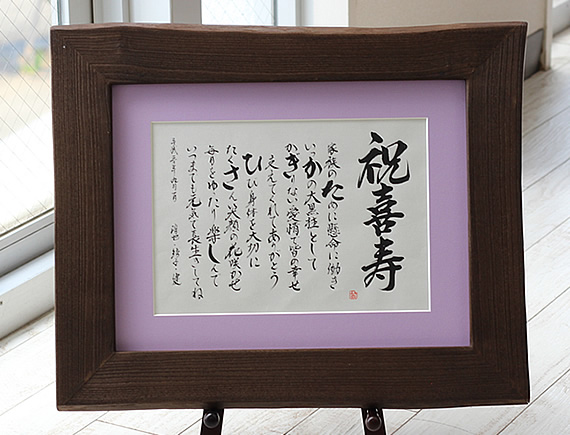 祝喜寿
家族のために懸命に働き
いつかの大黒柱として
かぎりない愛情で皆の幸せ
支えてくれてありがとう
ひび身体を大切に
たくさん笑顔の花咲かせ
毎日をゆったり楽しんで
いつまでも元気で長生きしてね
平成 年 月 日